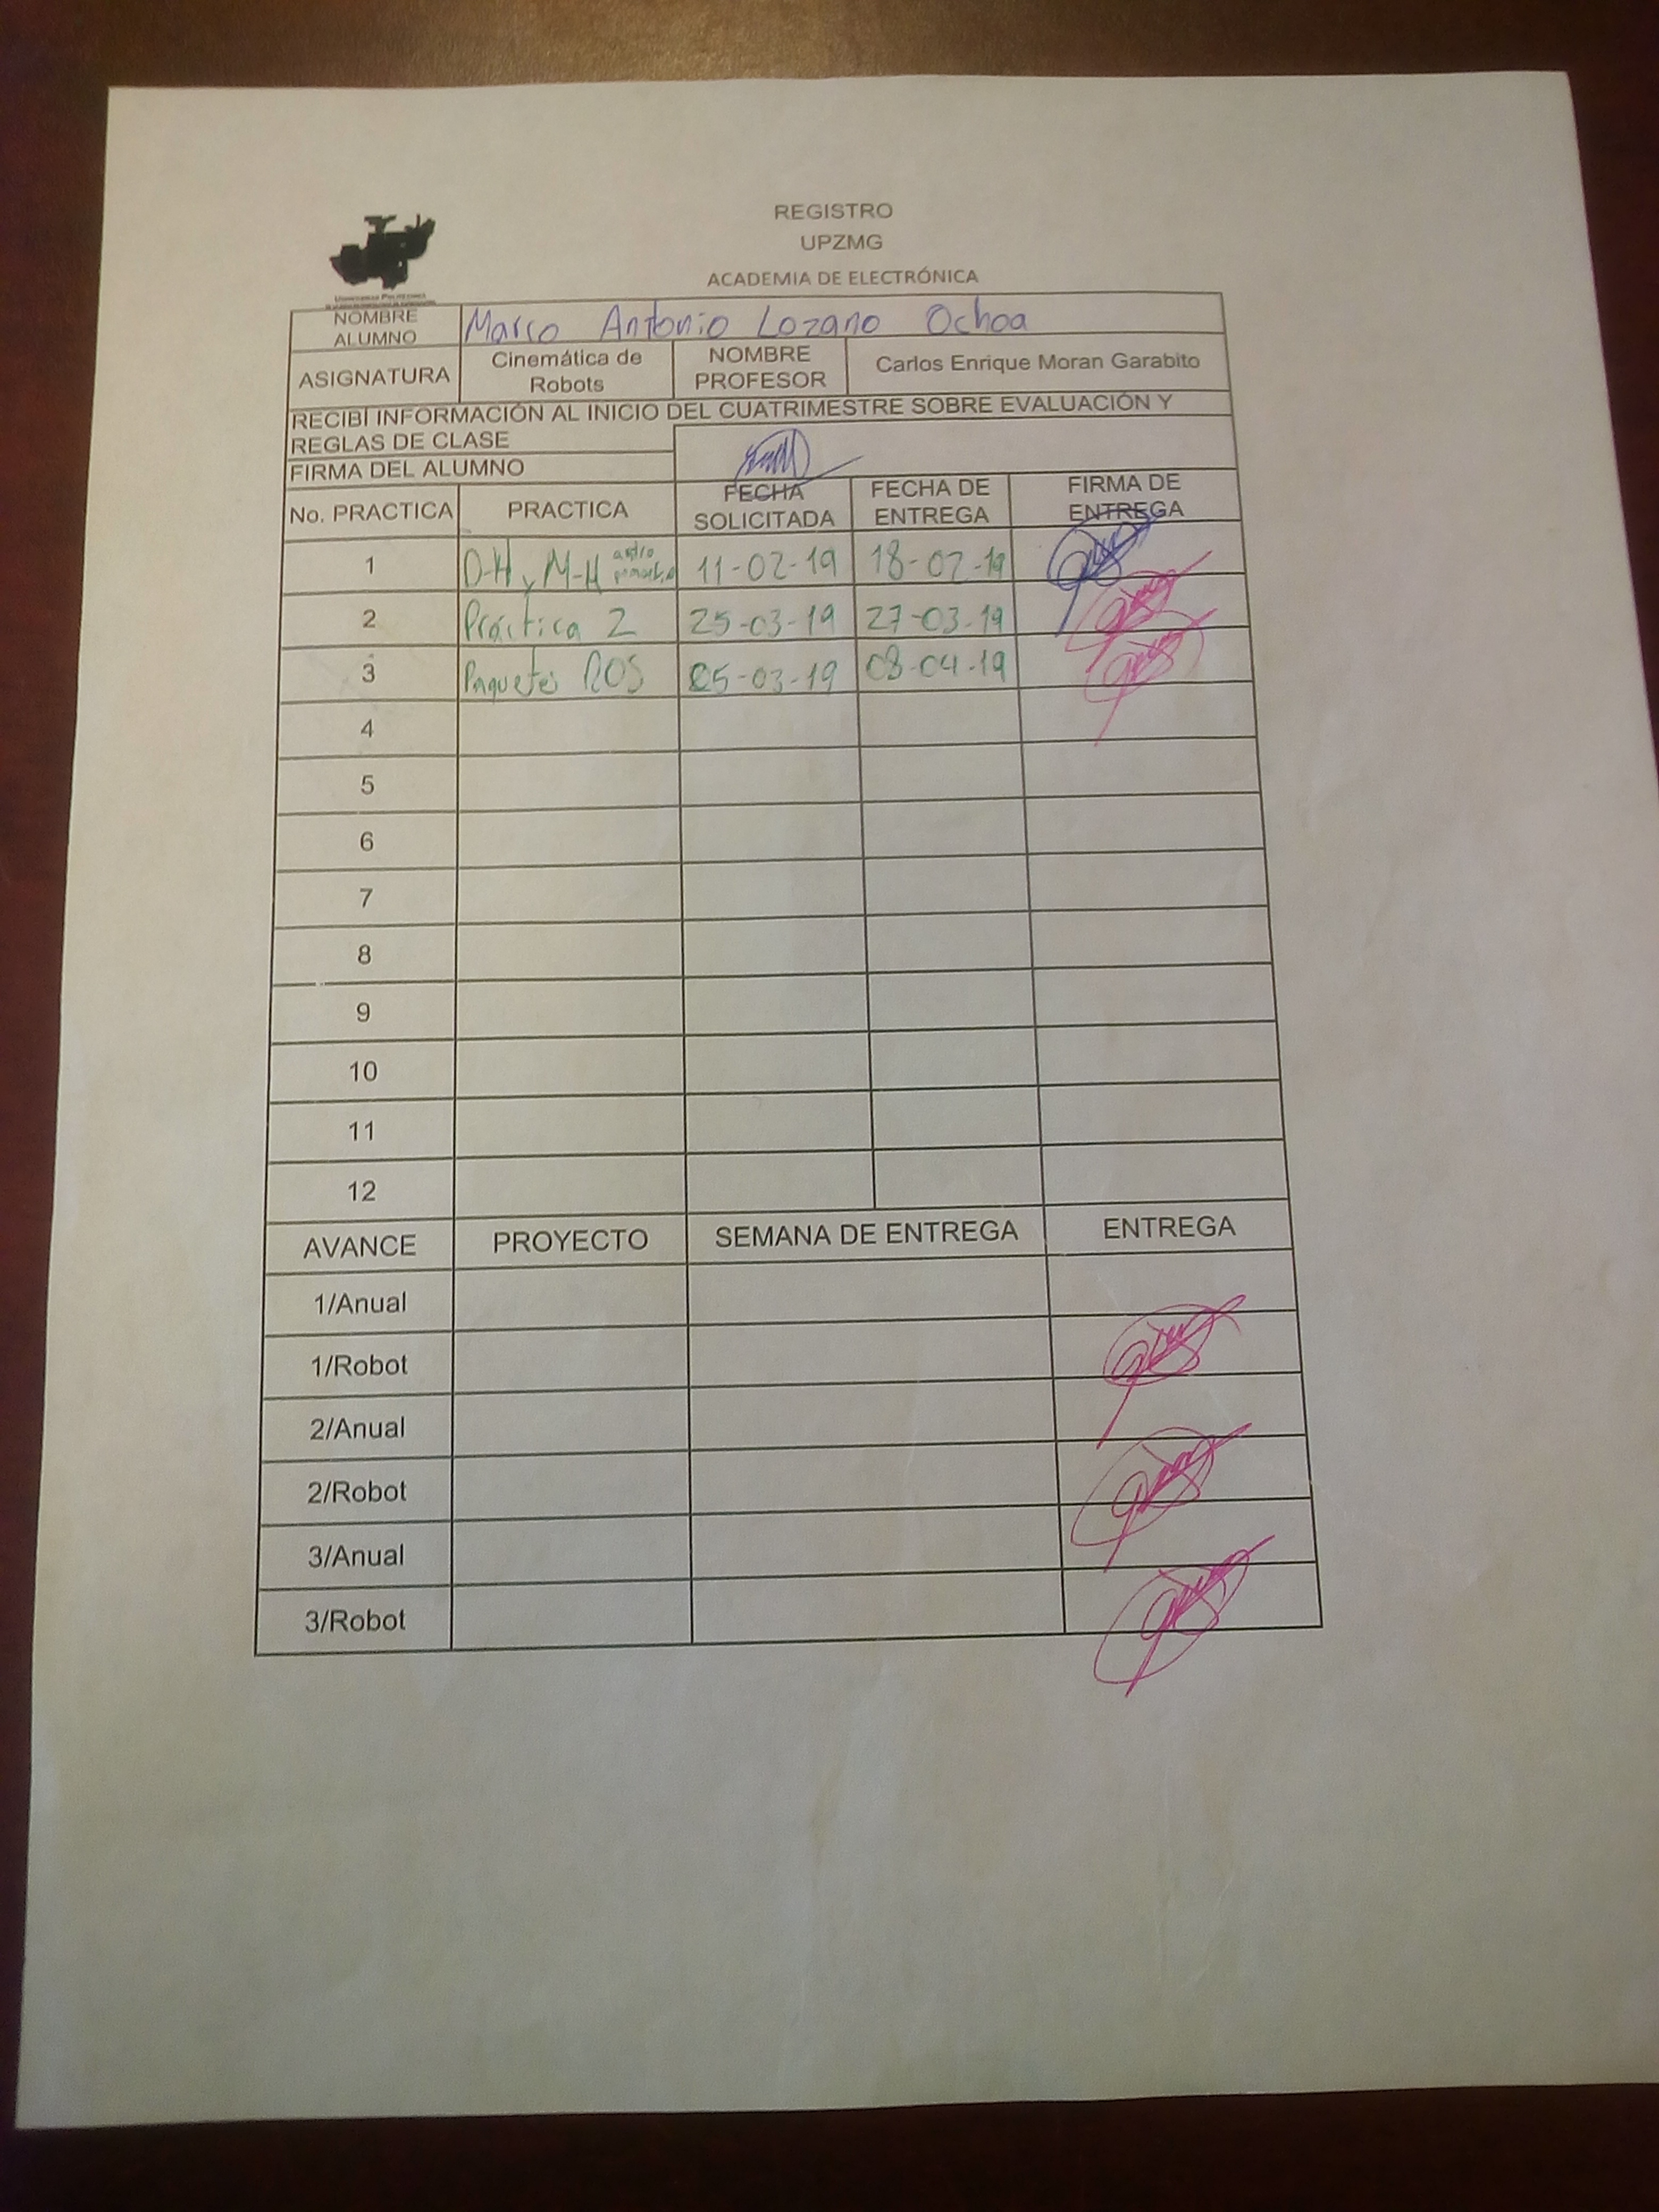 REGISTRO
UPZMG
ACADEMIA DE ELECTRÓNICA
UNIVERSIDAD POLITÉCNICA
NOMBRE ALUMNO Marco Antonio Lozano Ochoa
ASIGNATURA Cinemática de Robots NOMBRE PROFESOR Carlos Enrique Moran Garabito
RECIBÍ INFORMACIÓN AL INICIO DEL CUATRIMESTRE SOBRE EVALUACIÓN Y
REGLAS DE CLASE
FIRMA DEL ALUMNO
No. PRACTICA PRACTICA FECHA SOLICITADA FECHA DE ENTREGA FIRMA DE ENTREGA
1 D-H y M-H 11-02-19 18-02-19
2 Práctica 2 25-03-19 27-03-19
3 Paquetes ROS 25-03-19 08-04-19
4
5
6
7
8
9
10
11
12
AVANCE PROYECTO SEMANA DE ENTREGA ENTREGA
1/Anual
1/Robot
2/Anual
2/Robot
3/Anual
3/Robot